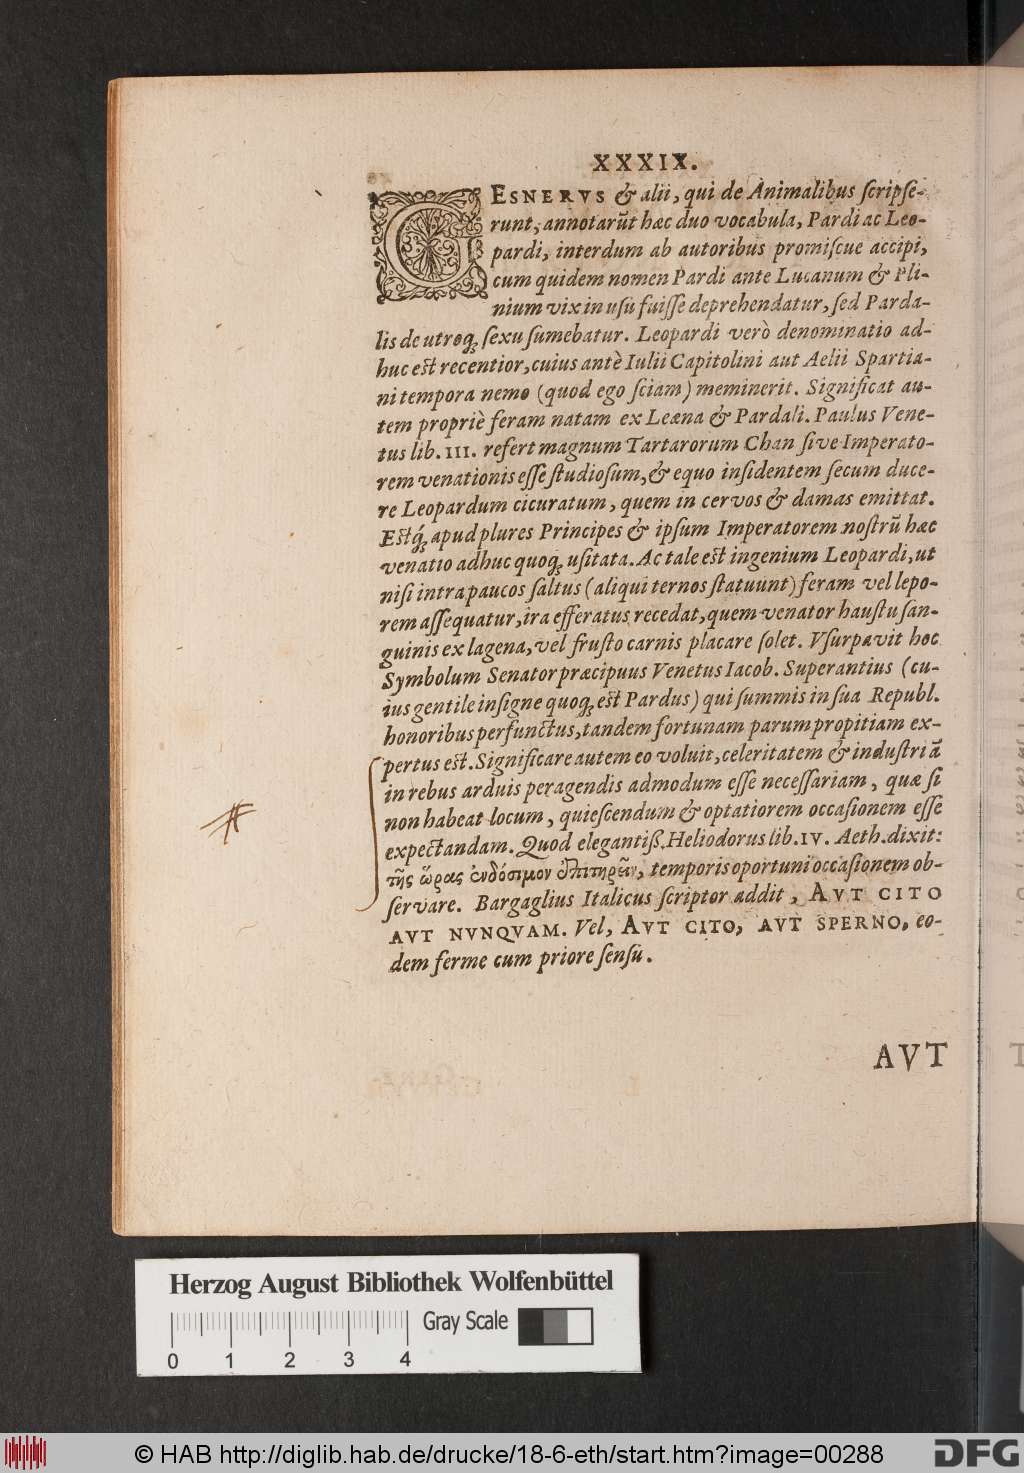 XXXIX.
GESNERVS & alii, qui de Animalibus ſcripſe-
runt, annotarūt hæc duo vocabula, Pardi ac Leo-
pardi, interdum ab autoribus promiſcue accipi,
cum quidem nomen Pardi ante Lucanum & Pli-
nium vix in uſu fuiſſe deprehendatur, ſed Parda-
lis de utroq; ſexu ſumebatur. Leopardi verò denominatio ad-
huc est recentior, cuius antè Iulii Capitolini aut Aelii Spartia-
ni tempora nemo (quod ego ſciam) meminerit. Significat au-
tem propriè feram natam ex Leæna & Pardali. Paulus Vene-
tus lib. III. refert magnum Tartarorum Chan ſive Imperato-
rem venationis eſſe ſtudioſum, & equo inſidentem ſecum duce-
re Leopardum cicuratum, quem in cervos & damas emittat.
Estq́; apud plures Principes & ipſum Imperatorem noſtrū hæc
venatio adhuc quoq; uſitata. Ac tale est ingenium Leopardi, ut
niſi intra paucos ſaltus (aliqui ternos ſtatuunt) feram vel lepo-
rem aſſequatur, ira efferatus recedat, quem venator hauſtu ſan-
guinis ex lagena, vel fruſto carnis placare ſolet. Vſurpavit hoc
Symbolum Senator præcipuus Venetus Iacob. Superantius (cu-
ius gentile inſigne quoq; est Pardus) qui ſummis in ſua Republ.
honoribus perfunctus, tandem fortunam parum propitiam ex-
pertus est. Significare autem eo voluit, celeritatem & induſtriā
in rebus arduis peragendis admodum eſſe neceſſariam, quæ ſi
non habeat locum, quieſcendum & optatiorem occaſionem eſſe
expectandam. Quod elegantiß. Heliodorus lib. IV. Aeth. dixit:
τῆς ὥρας ἐνδόσιμον ἐπιτηρεῖν, temporis oportuni occaſionem ob-
ſervare. Bargaglius Italicus ſcriptor addit, AVT CITO
AVT NVNQVAM. Vel, AVT CITO, AVT SPERNO, eo-
dem ferme cum priore ſenſu.
AVT
Herzog August Bibliothek Wolfenbüttel
Gray Scale
0 1 2 3 4
© HAB http://diglib.hab.de/drucke/18-6-eth/start.htm?image=00288
DFG